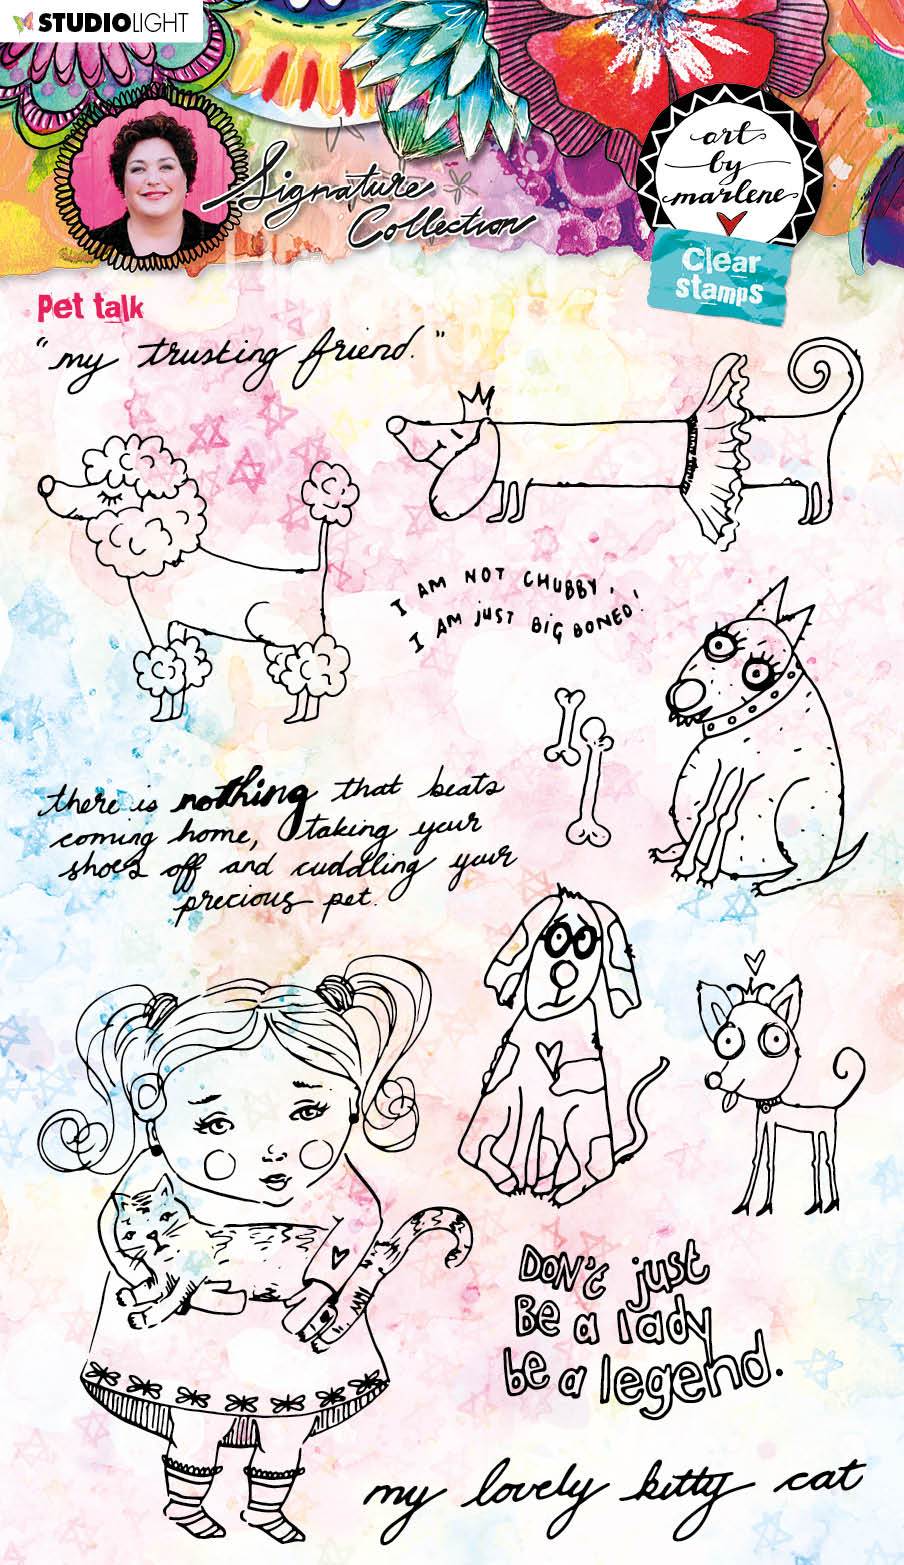 STUDIOLIGHT
Signature
Collection
art
by
marlene
Clear
stamps
Pet talk
"my trusting friend."
I AM NOT CHUBBY,
I AM just BIG BONED!
there is nothing that beats
coming home, taking your
shoes off and cuddling your
precious pet.
DON't just
Be a lady
be a legend.
my lovely kitty cat